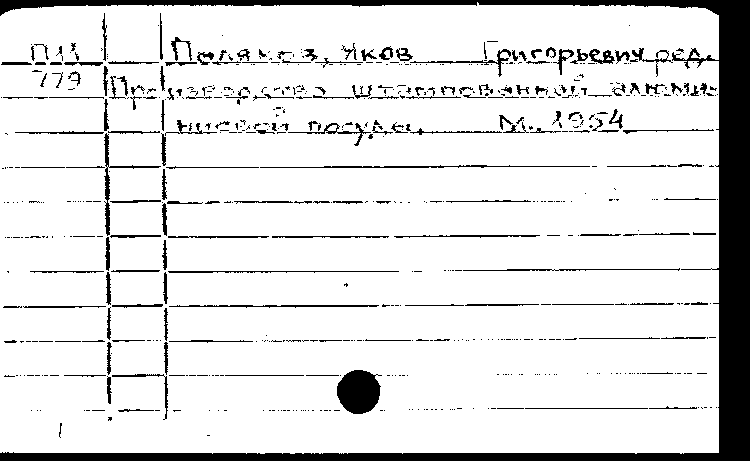 П11 Поляков, Яков Григорьевич ред.
779 Производство штампованной алюми-
ниевой посуды. М., 1954